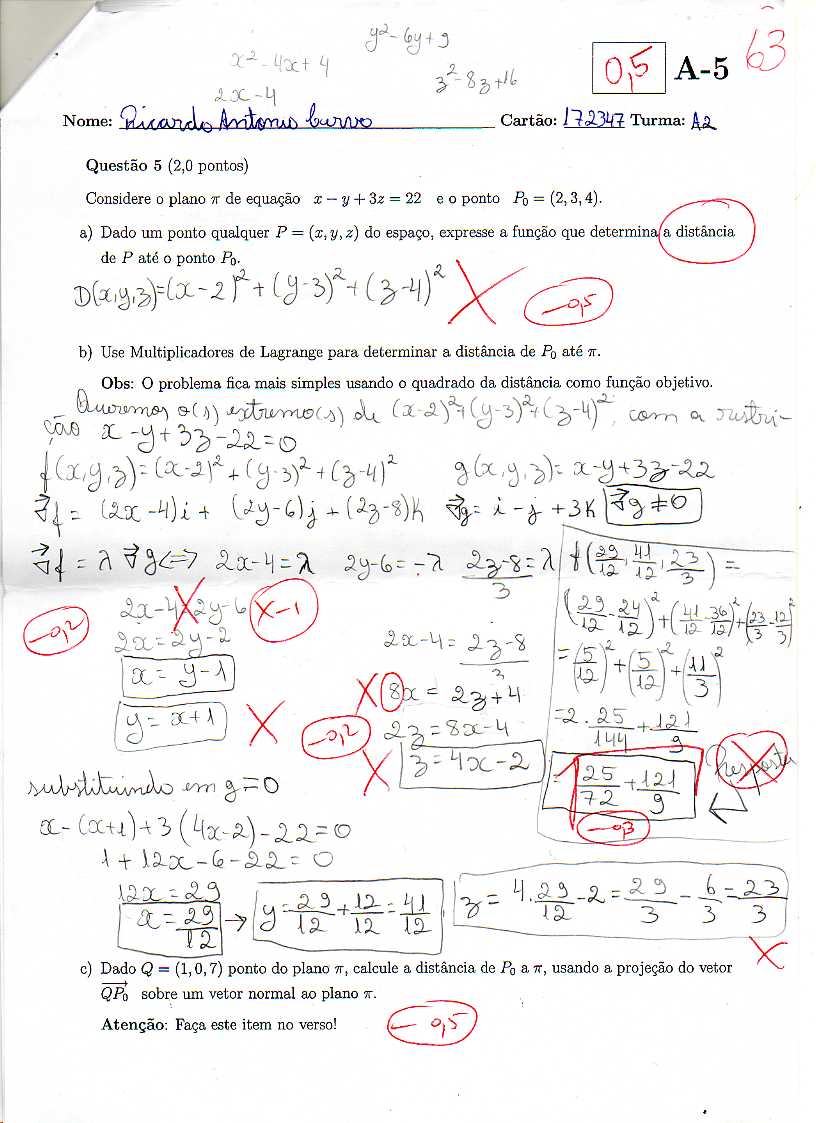 y² - 6y + 9
x² - 4x + 4
z² - 8z + 16
2x - 4
0,5 A-5 63
Nome: Ricardo Antonio Curvo Cartão: 172347 Turma: A2
Questão 5 (2,0 pontos)
Considere o plano π de equação x − y + 3z = 22 e o ponto P₀ = (2, 3, 4).
a) Dado um ponto qualquer P = (x, y, z) do espaço, expresse a função que determina a distância
de P até o ponto P₀.
D(x,y,z)=(x-2)²+(y-3)²+(z-4)² X
-0,5
b) Use Multiplicadores de Lagrange para determinar a distância de P₀ até π.
Obs: O problema fica mais simples usando o quadrado da distância como função objetivo.
- Queremos o(s) extremo(s) de (x-2)²+(y-3)²+(z-4)², com a restri-
ção x-y+3z-22=0
f(x,y,z)=(x-2)²+(y-3)²+(z-4)² g(x,y,z)= x-y+3z-22
∇f = (2x-4)i + (2y-6)j + (2z-8)k ∇g= i - j + 3k ∇g≠0
∇f = λ∇g ⟺ 2x-4=λ 2y-6=-λ (2z-8)/3=λ
2x-4=2y-6 X-1
-0,2
2x=2y-2
x = y-1
y = x+1 X
2x-4 = (2z-8)/3
X 8x = 2z+4
-0,2 2z=8x-4
X z=4x-2
f(29/12, 41/12, 23/3) =
(29/12 - 24/12)² + (41/12 - 36/12)² + (23/3 - 12/3)²
= (5/12)² + (5/12)² + (11/3)²
= 2 · 25/144 + 121/9
= 25/72 + 121/9 Resposta X
-0,3
substituindo em g=0
x-(x+1)+3(4x-2)-22=0
1+12x-6-22=0
12x=29
x=29/12 → y=29/12+12/12=41/12, z=4·29/12-2=29/3-6/3=23/3
X
c) Dado Q = (1, 0, 7) ponto do plano π, calcule a distância de P₀ a π, usando a projeção do vetor
QP₀ sobre um vetor normal ao plano π.
Atenção: Faça este item no verso! -0,5